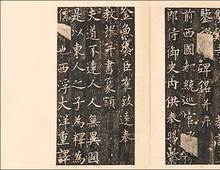 碑銘并序
前西國都統巡官
郎侍御史内供奉賜紫
金魚袋臣崔致遠奉
教撰并書篆額
夫道不遠人人無異國
是以東人之子為釋為
儒必也西浮大洋重譯